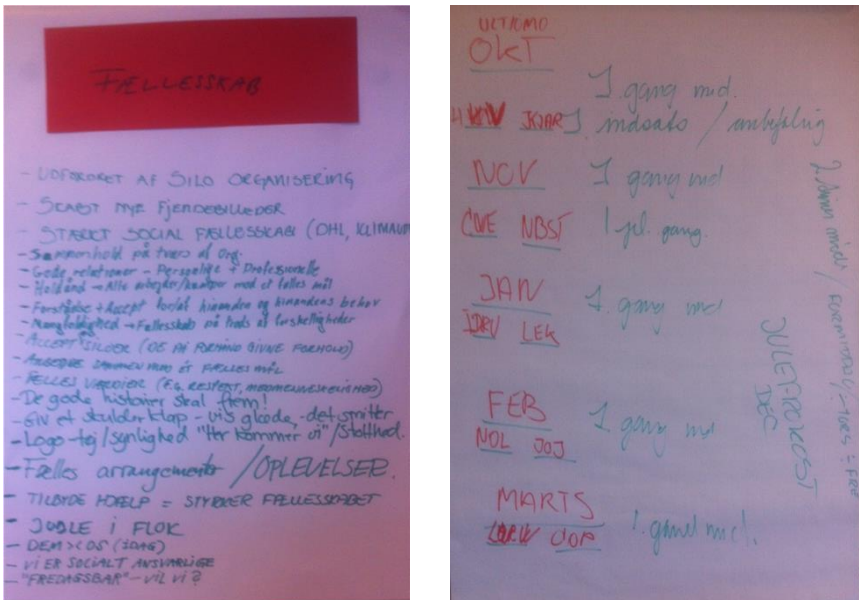 FÆLLESSKAB
- UDFORDRET AF SILO ORGANISERING
- SKABT NYE FJENDEBILLEDER
- STÆRKT SOCIAL FÆLLESSKAB (DHL, KLIMAUM
- Sammenhold på tværs af org.
- Gode relationer - Personlige + Professionelle
- Holdånd → Alle arbejder/kæmper mod et fælles mål
- Forståelse + Accept for hinanden og hinandens behov
- Mangfoldighed → Fællesskab på trods af forskelligheder
- ACCEPT SILOER (DE PÅ FORHÅND GIVNE FORHOLD)
- ARBEJDE SAMMEN MOD ÉT FÆLLES MÅL
- FÆLLES VÆRDIER (F.G. RESPEKT, MEDMENNESKELIGHED)
- De gode historier skal frem!
- Giv et skulderklap - vis glæde, - det smitter
- Logo-tøj/synlighed "Her kommer vi"/Stolthed.
- Fælles arrangementer /OPLEVELSER.
- TILBYDE HJÆLP = STYRKER FÆLLESSKABET
- JUBLE I FLOK
- DEM > < OS (IDAG)
- VI ER SOCIALT ANSVARLIGE
- "FREDAGSBAR" - VIL VI?
ULTIMO
OKT
1. gang md.
1. indsats / anbefaling
NOV 1 gang md
NBST 1 gang.
JAN 1. gang md
LEK
FEB 1 gang md
NOL JOJ
MARTS
1. gang md.
JULEFROKOST
DEC